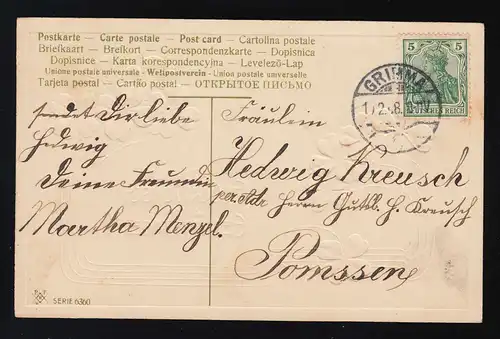 Postkarte – Carte postale – Post card – Cartolina postale
Briefkaart – Brefkort – Correspondenzkarte – Dopisnica
Dopisnice – Karta korespondencyjna – Levelező-Lap
Unione postale universale – Weltpostverein – Union postale universelle
Tarjeta postal – Cartão postal – ОТКРЫТОЕ ПИСЬМО
5 5
DEUTSCHES REICH
GRIMMA
sendet Dir liebe
Hedwig
Deine Freundin
Martha Menzel.
Fräulein
Hedwig Kreusch
per. Adr. Herrn Gutsb. H. Kreusch
Pomssen
SERIE 6360